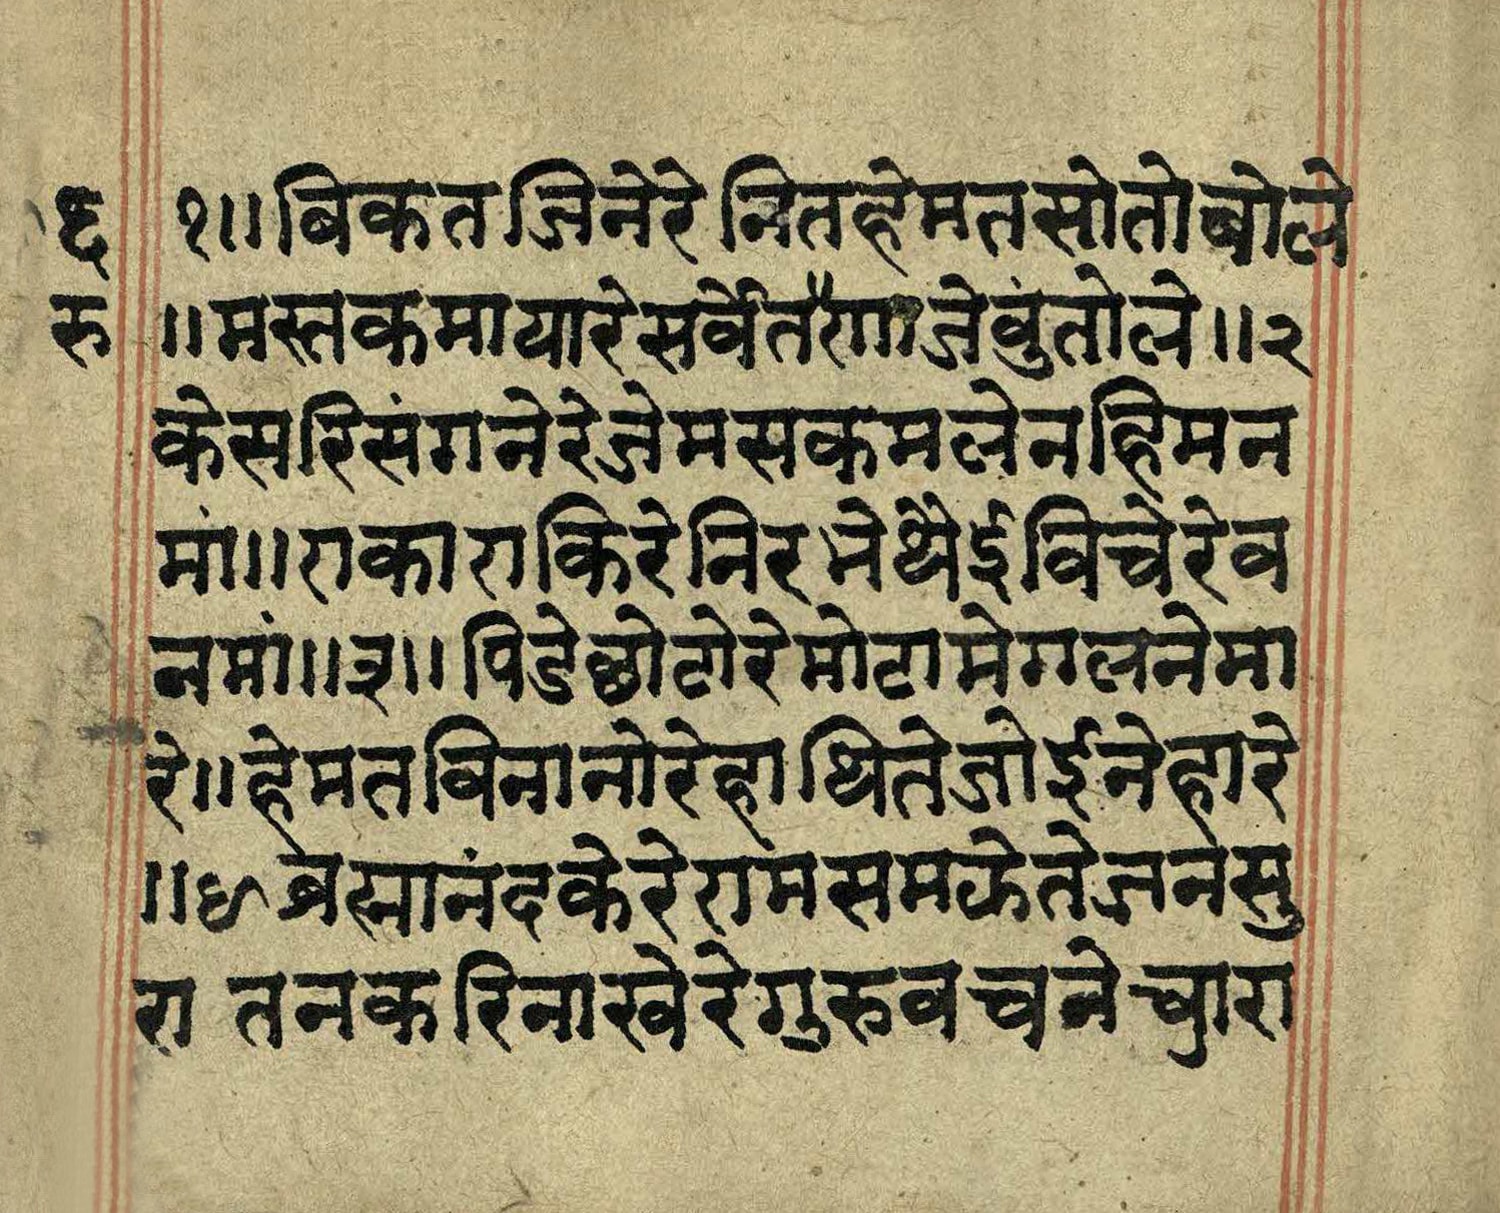 ६ १॥ विकत जिनेरे नित हेमत सोतो बोले
रु ॥ मस्तक मायारे सर्वे तैगाा जेवुं तोले ॥२
केसरि संगनेरे जेम सकमले नहि मन
मां॥ राकाराकिरे निरभे थैई विचेरे व
नमां॥३॥ पिडे छोटोरे मोटा मेगलने मा
रे॥ हेमत विनानोरे हाथि ते जोईने हारे
॥४ ब्रह्मानंद केरे राम समझे ते जन सु
रा तन करि नाखेरे गुरु वचने चुारा